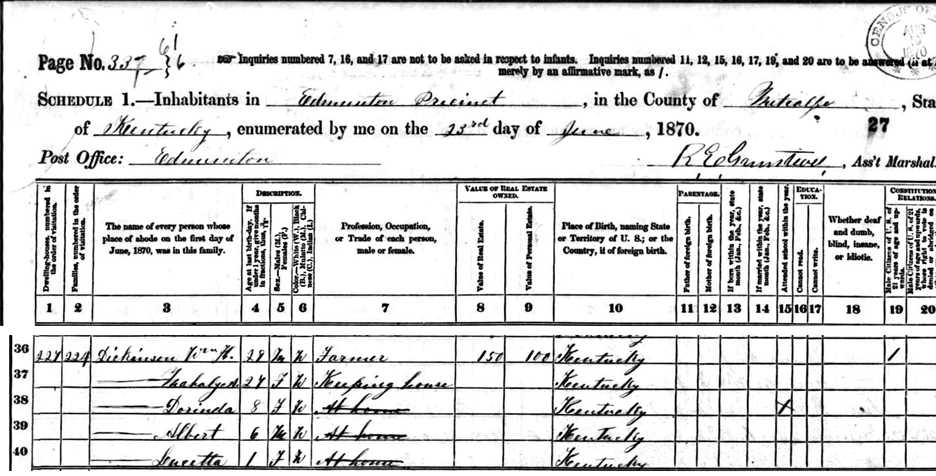 CENSUS OF
AUG
1870
Page No. 337 6
Inquiries numbered 7, 16, and 17 are not to be asked in respect to infants. Inquiries numbered 11, 12, 15, 16, 17, 19, and 20 are to be answered (if at
merely by an affirmative mark, as /.
SCHEDULE 1.—Inhabitants in Edmunton Precinct, in the County of Metcalfe, Sta
of Kentucky, enumerated by me on the 23rd day of June, 1870.
27
Post Office: Edmunton
R E, Ass't Marshal.
Dwelling-houses, numbered in the order of visitation.
Families, numbered in the order of visitation.
The name of every person whose place of abode on the first day of June, 1870, was in this family.
DESCRIPTION.
Age at last birth-day. If under 1 year, give months in fractions, thus,
Sex.—Males (M.), Females (F.)
Color.—White (W.), Black (B.), Mulatto (M.), Chinese (C.), Indian (I.)
Profession, Occupation, or Trade of each person, male or female.
VALUE OF REAL ESTATE OWNED.
Value of Real Estate.
Value of Personal Estate.
Place of Birth, naming State or Territory of U. S.; or the Country, if of foreign birth.
PARENTAGE.
Father of foreign birth.
Mother of foreign birth.
If born within the year, state month (Jan., Feb., &c.)
If married within the year, state month (Jan., Feb., &c.)
Attended school within the year.
EDUCATION.
Cannot read.
Cannot write.
Whether deaf and dumb, blind, insane, or idiotic.
CONSTITUTION
RELATIONS.
Male Citizens of U. S. of 21 years of age and upwards.
Male Citizens of U. S. of 21 years of age and upwards, where right to vote is denied or abridged
1 2 3 4 5 6 7 8 9 10 11 12 13 14 15 16 17 18 19 20
36 227 224 Dickinsen Wm H. 28 M W Farmer 150 100 Kentucky 1
37 —— 27 F W Keeping house Kentucky
38 —— Dorinda 8 F W At home Kentucky X
39 —— Albert 6 M W At home Kentucky
40 —— 1 F W At home Kentucky